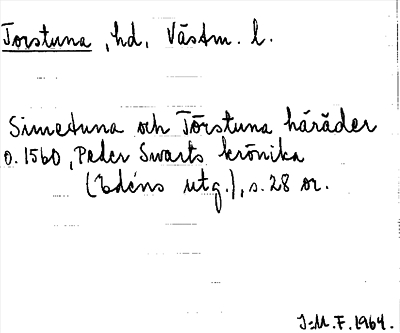 Torstuna, hd, Västm. l.
Simetuna och Torstuna häräder
o. 1560, Peder Swarts krönika
(Edéns utg.), s. 28 or.
J-M. F. 1964.